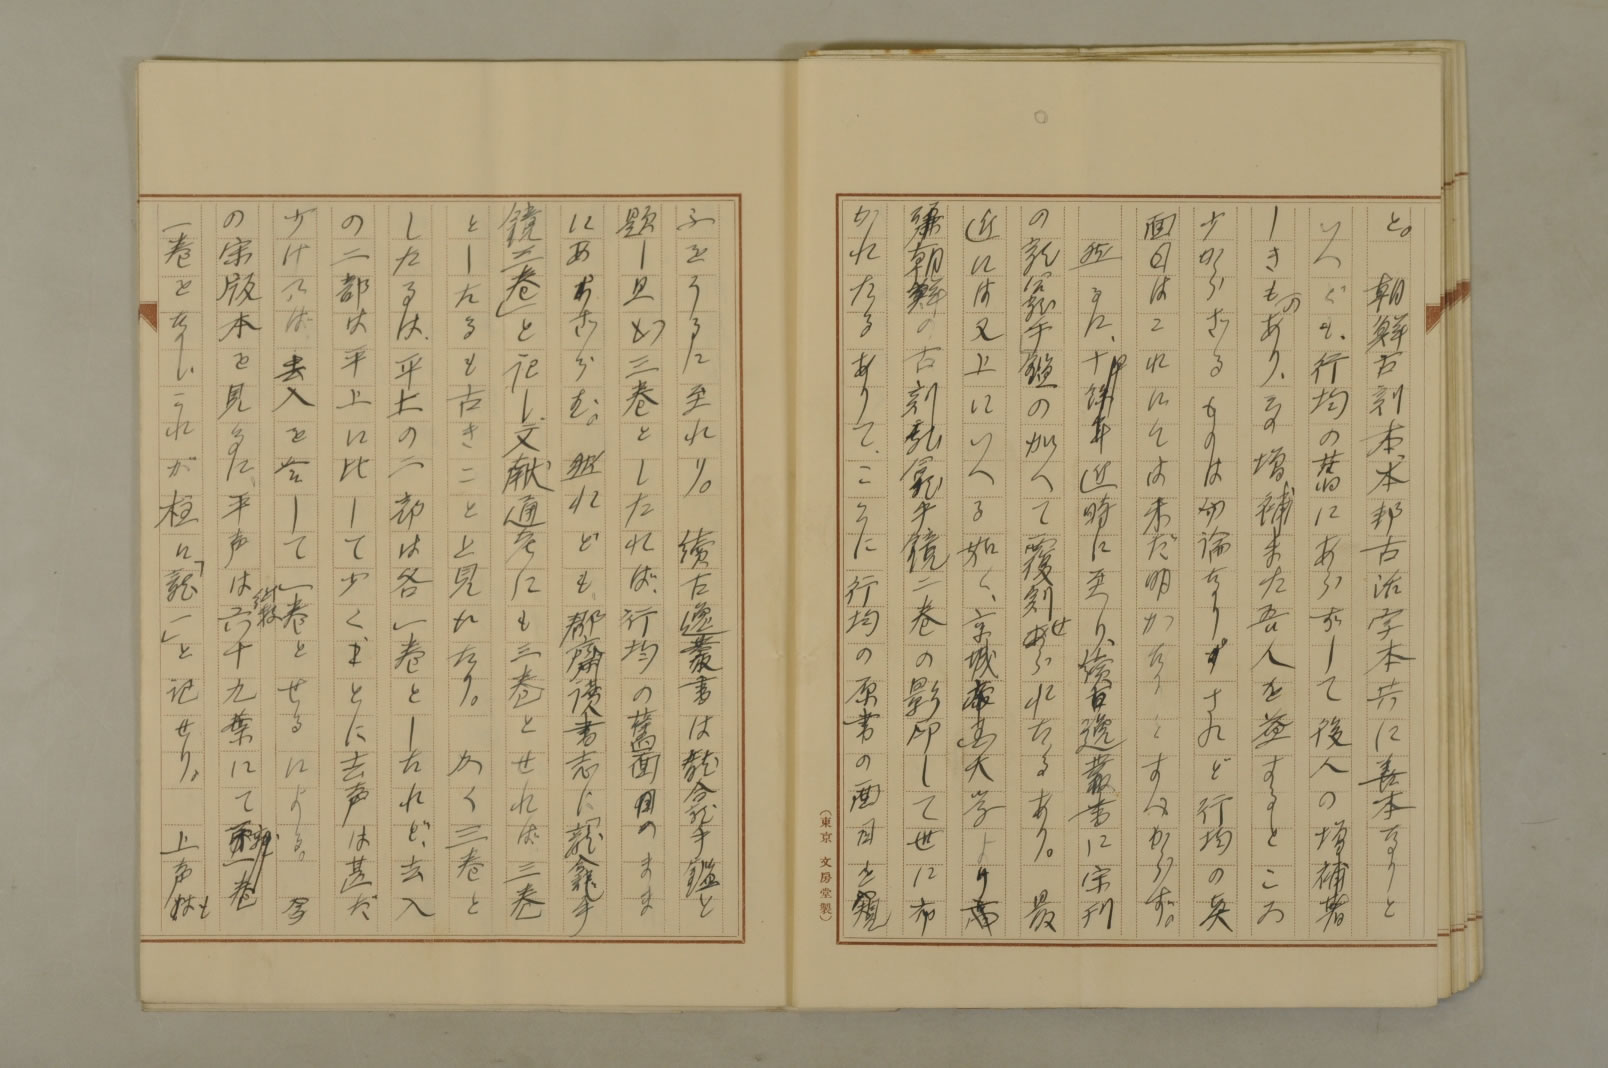 と。朝鮮古刻本、本邦古活字本共に善本なりと
いへども、行均の舊にあらずして後人の増補著
しきものあり、その増補また吾人を益するところ
少からざるものは勿論なり されど行均の眞
面目はこれにては未だ明かなりとすべからず。
然るに、十餘年近時に至り、續古逸叢書に宋刊
の龍龕手鑑の加へて覆刻せられたるあり。最
近には又上にいへる如く、京城帝大学より
朝鮮の古刻龍龕手鏡二巻の影印して世に布
かれたるありて、ここに行均の原書の面目を窺
ふをうるに至れり。續古逸叢書は龍龕手鑑と
題し且つ三巻としたれば、行均の舊面目のまま
にあらざらむ。然れども郡齋讀書志に「龍龕手
鏡三巻」と記し、文献通考にも三巻とせれば三巻
としたるも古きことと見れたり。かく三巻と
したるは、平上の二部は各一巻としたれど、去入
の二部は平上に比して少く、ことに去声は甚だ
少ければ、去入を合して一巻とせるによる。今
の宋版本を見るに、平声は六十九葉にて
一巻となし、これが柱に「龍一」と記せり。上声も
(東京 文房堂製)